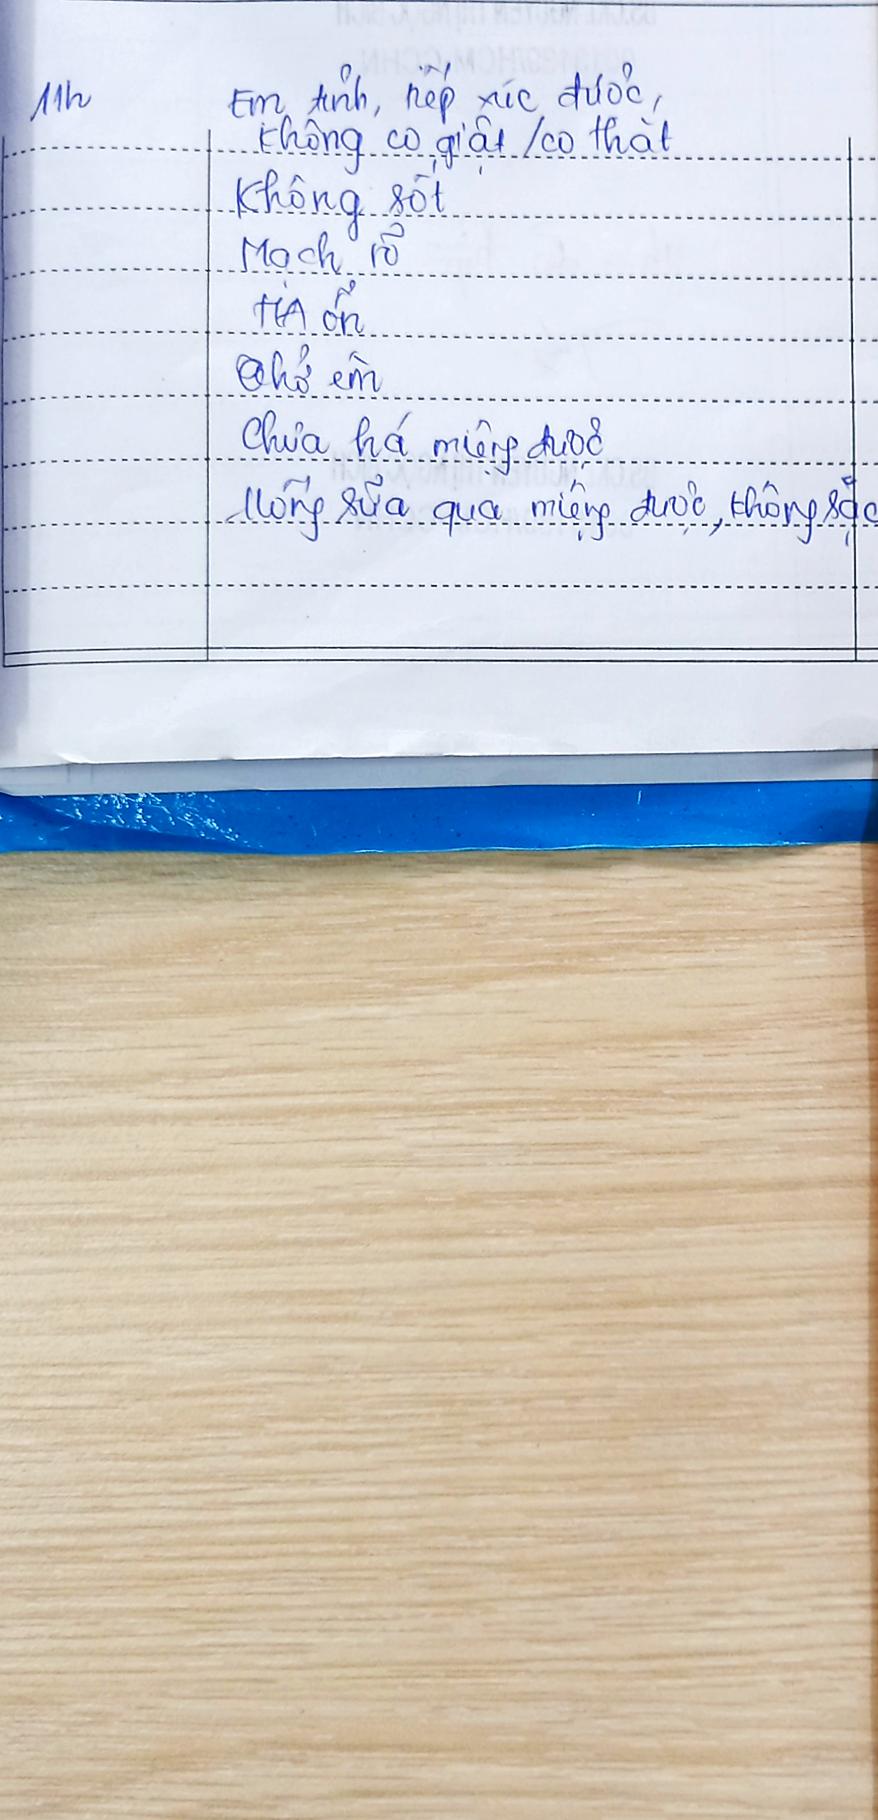 11h Em tỉnh, tiếp xúc được,
không co giật / co thắt
Không sốt
Mạch rõ
HA ổn
Thở êm
Chưa há miệng được
Uống sữa qua miệng được, không sặc